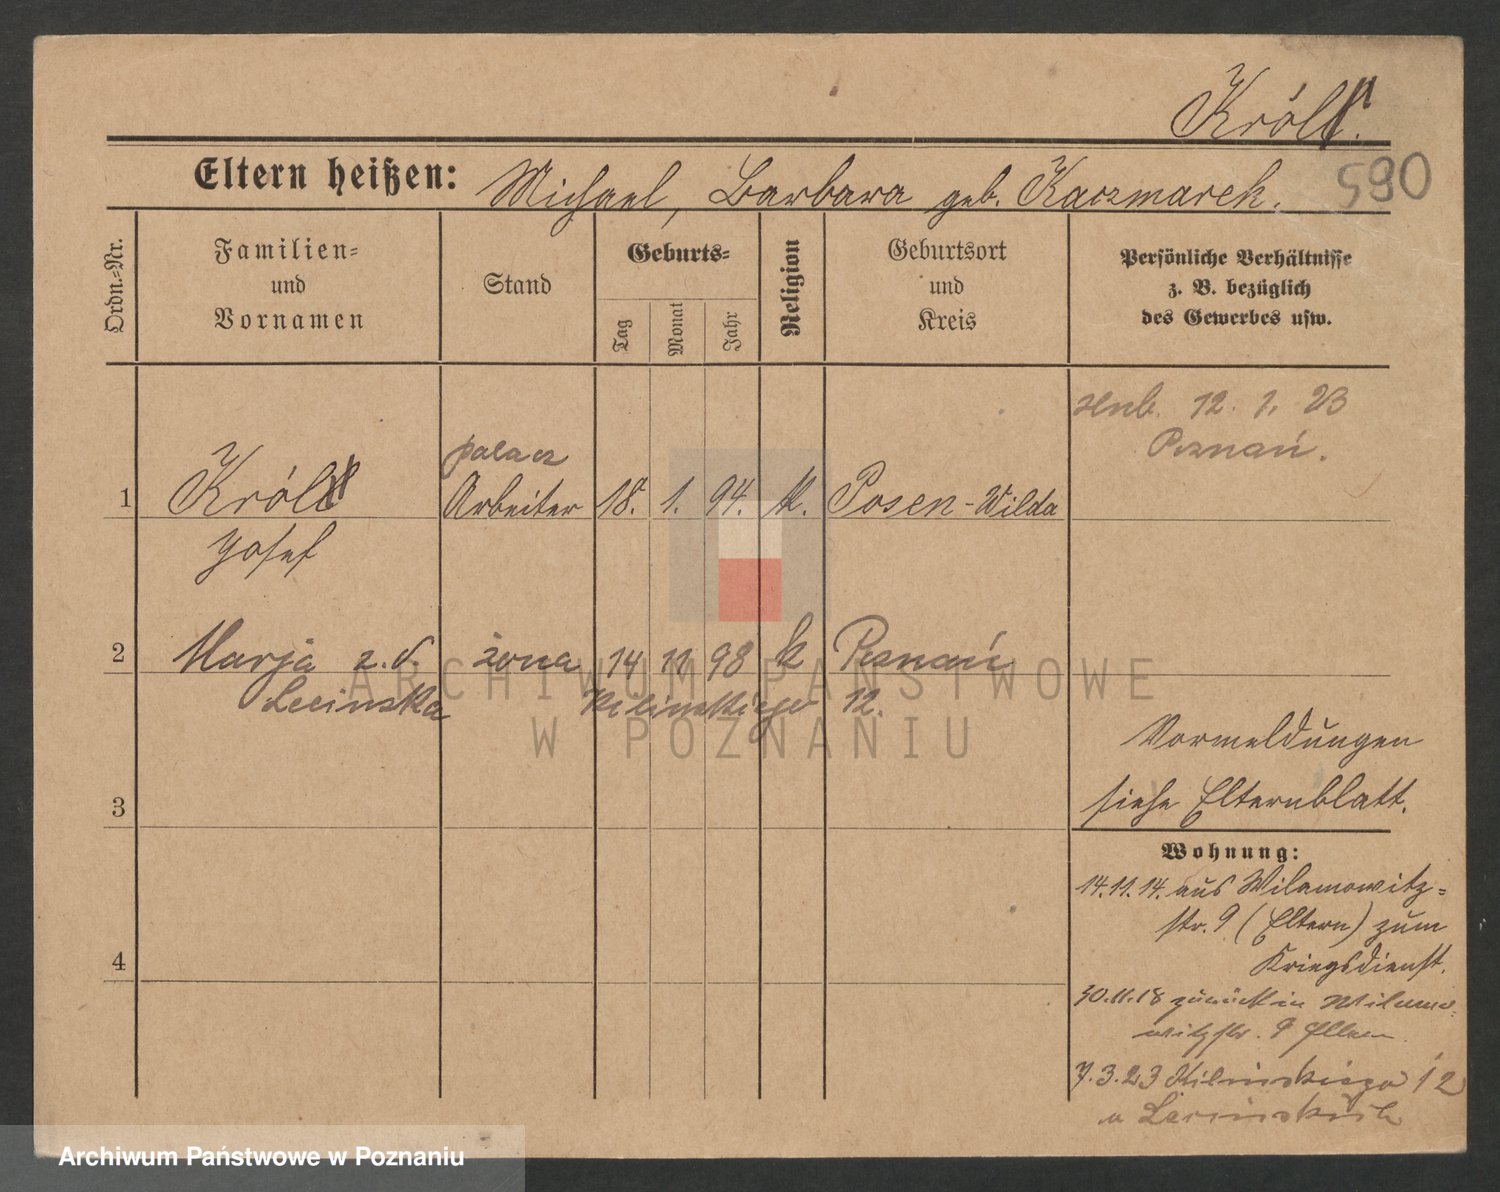 Król.
590
Eltern heißen: Michael, Barbara geb. Kaczmarek.
Ordn.-Nr.
Familien-
und
Vornamen
Stand
Geburts-
Tag
Monat
Jahr
Religion
Geburtsort
und
Kreis
Persönliche Verhältnisse
z. B. bezüglich
des Gewerbes usw.
12. 1. 23
Poznań.
palacz
1 Król Arbeiter 18. 1. 94. k. Posen-Wilda
Josef
2 Marja z. d. żona 14 11 98 k Poznań
Lecinska Kilinskiego 12.
Vormeldungen
3 siehe Elternblatt.
Wohnung:
14.11.14. aus Wilamowitz-
str. 9 (Eltern) zum
4 Kriegsdienst.
30.11.18 zurück in Wilamo-
witzstr. 9 Eltern
7.3.23 Kilinskiego 12
u Lecinskich
ARCHIWUM PAŃSTWOWE
W POZNANIU
Archiwum Państwowe w Poznaniu